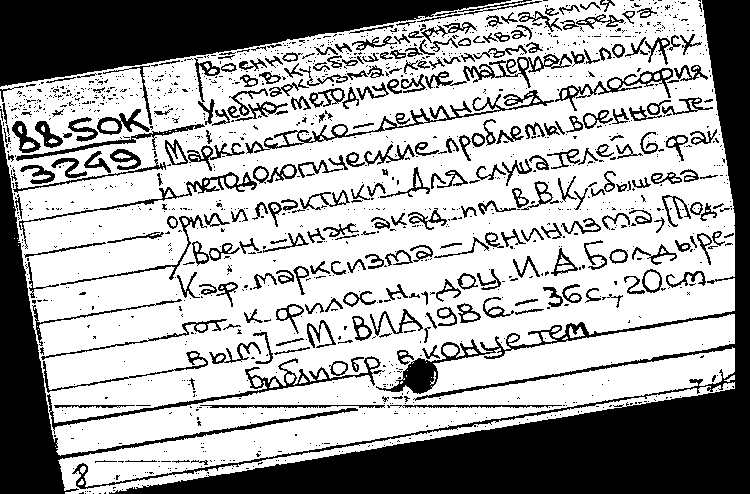 Военно-инженерная академия
В.В.Куйбышева(Москва). Кафедра
марксизма-ленинизма
Учебно-методические материалы по курсу
88-50К
3249
Марксистско-ленинская философия
и методологические проблемы военной те-
ории и практики": Для слушателей 6 фак
/ Воен.-инж. акад. им. В.В.Куйбышева
Каф. марксизма-ленинизма; [Под-
гот. к. филос. н., доц. И.А.Болдыре-
вым]-М.:ВИА, 1986.-36с.; 20см.
Библиогр. в конце тем.
8